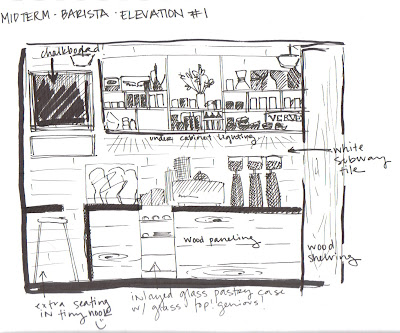 MIDTERM · BARISTA · ELEVATION #1
chalkboard
under cabinet lighting
VERVE
white
subway
tile
wood paneling
wood
shelving
extra seating
IN tiny nook
inlayed glass pastry case
w/ glass top! genious!